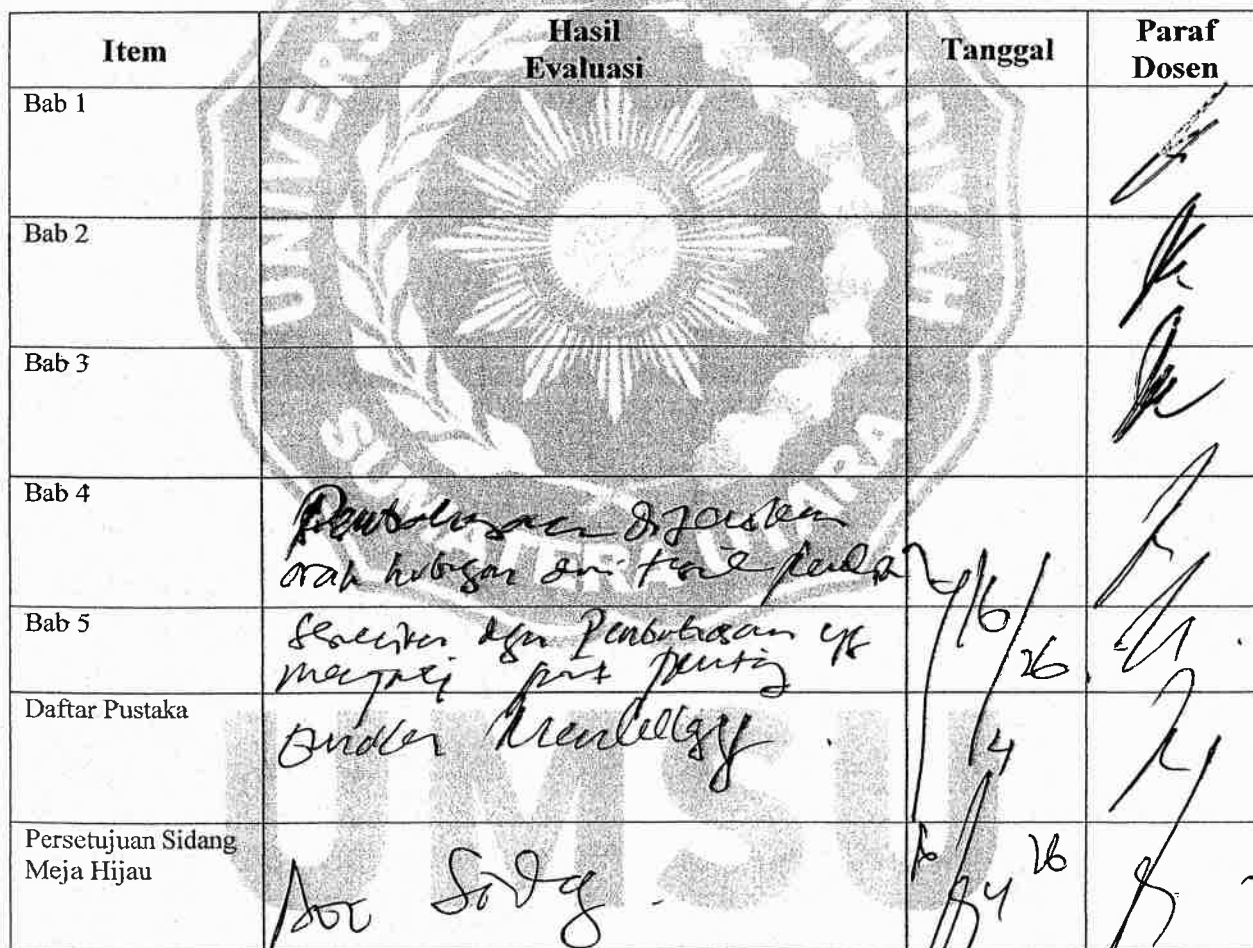 Item Hasil Evaluasi Tanggal Paraf Dosen
Bab 1
Bab 2
Bab 3
Bab 4 Pembahasan dijelaskan
arah hubungan dari hasil
Bab 5 sesuaikan dgn Pembahasan yg
point penting
Daftar Pustaka Gunakan Mendeley
Persetujuan Sidang Meja Hijau Acc Sidang
26
UNIVERSITAS MUHAMMADIYAH
SUMATERA UTARA
UMSU